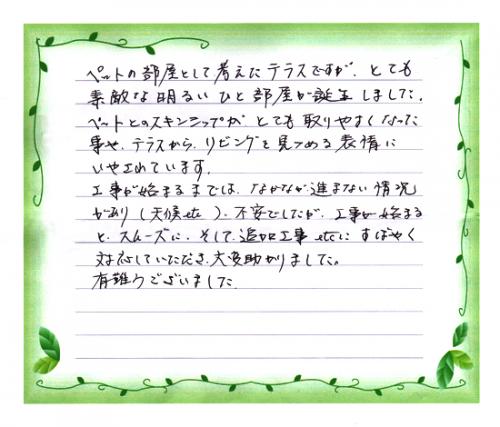 ペットの部屋として考えたテラスですが、とても
素敵な明るいひと部屋が誕生しました。
ペットとのスキンシップが とても取りやすくなった
事や、テラスから、リビングを見つめる表情に
いやされています。
工事が始まるまでは、なかなか進まない情況
があり（天候etc）、不安でしたが、工事が始まる
と、スムーズに、そして、追加工事etcにすばやく
対応していただき、大変助かりました。
有難うございました